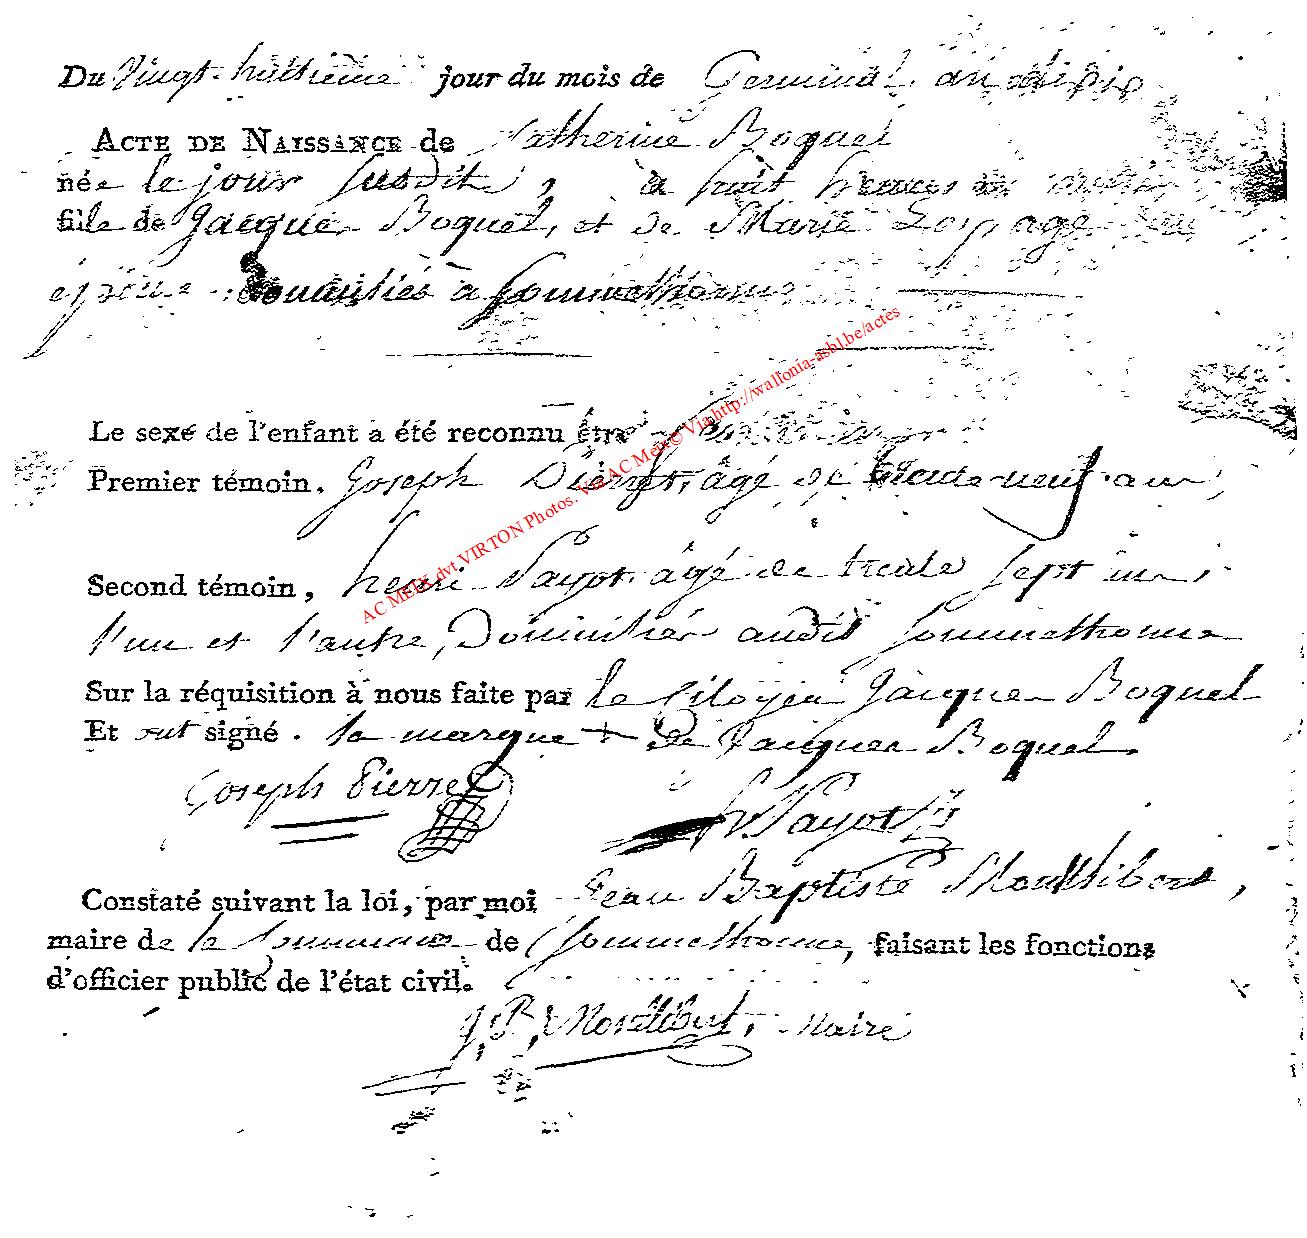 Du Vingt-huitieme jour du mois de Germinal an dix
ACTE DE NAISSANCE de Catherine Boquel
née le jour susdit, à huit heures
fille de Jacques Boquel, et de Marie Lepage
epouse domiciliés à Sommethonne
Le sexe de l'enfant a été reconnu être
Premier témoin, Joseph Pierret, âgé de trente neuf ans,
Second témoin, henri Payot âgé de trente sept ans,
l'un et l'autre, Domiciliés audit Sommethonne
Sur la réquisition à nous faite par le Citoyen Jacques Boquel
Et ont signé. la marque + de Jacques Boquel.
Joseph Pierret
h. Payot
Constaté suivant la loi, par moi Jean Baptiste Montlibert,
maire de la Commune de Sommethonne, faisant les fonctions
d'officier public de l'état civil.
J. B. Montlibert, Maire
AC MEIX dvt VIRTON Photos. Via AC Meix© Via http://wallonia-asbl.be/actes